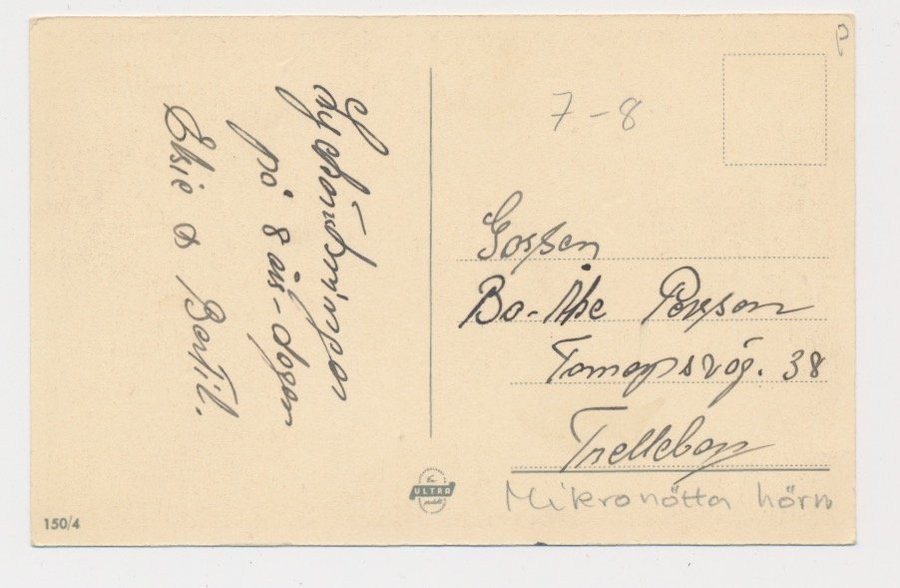 Hjärtliga
lyckönskningar
på 8 års-dagen
Elsie o Bertil.
P
7-8
Gossen
Bo-Åke Persson
Tomapsväg. 38
Trelleborg
Mikronötta hörn
ULTRA
150/4